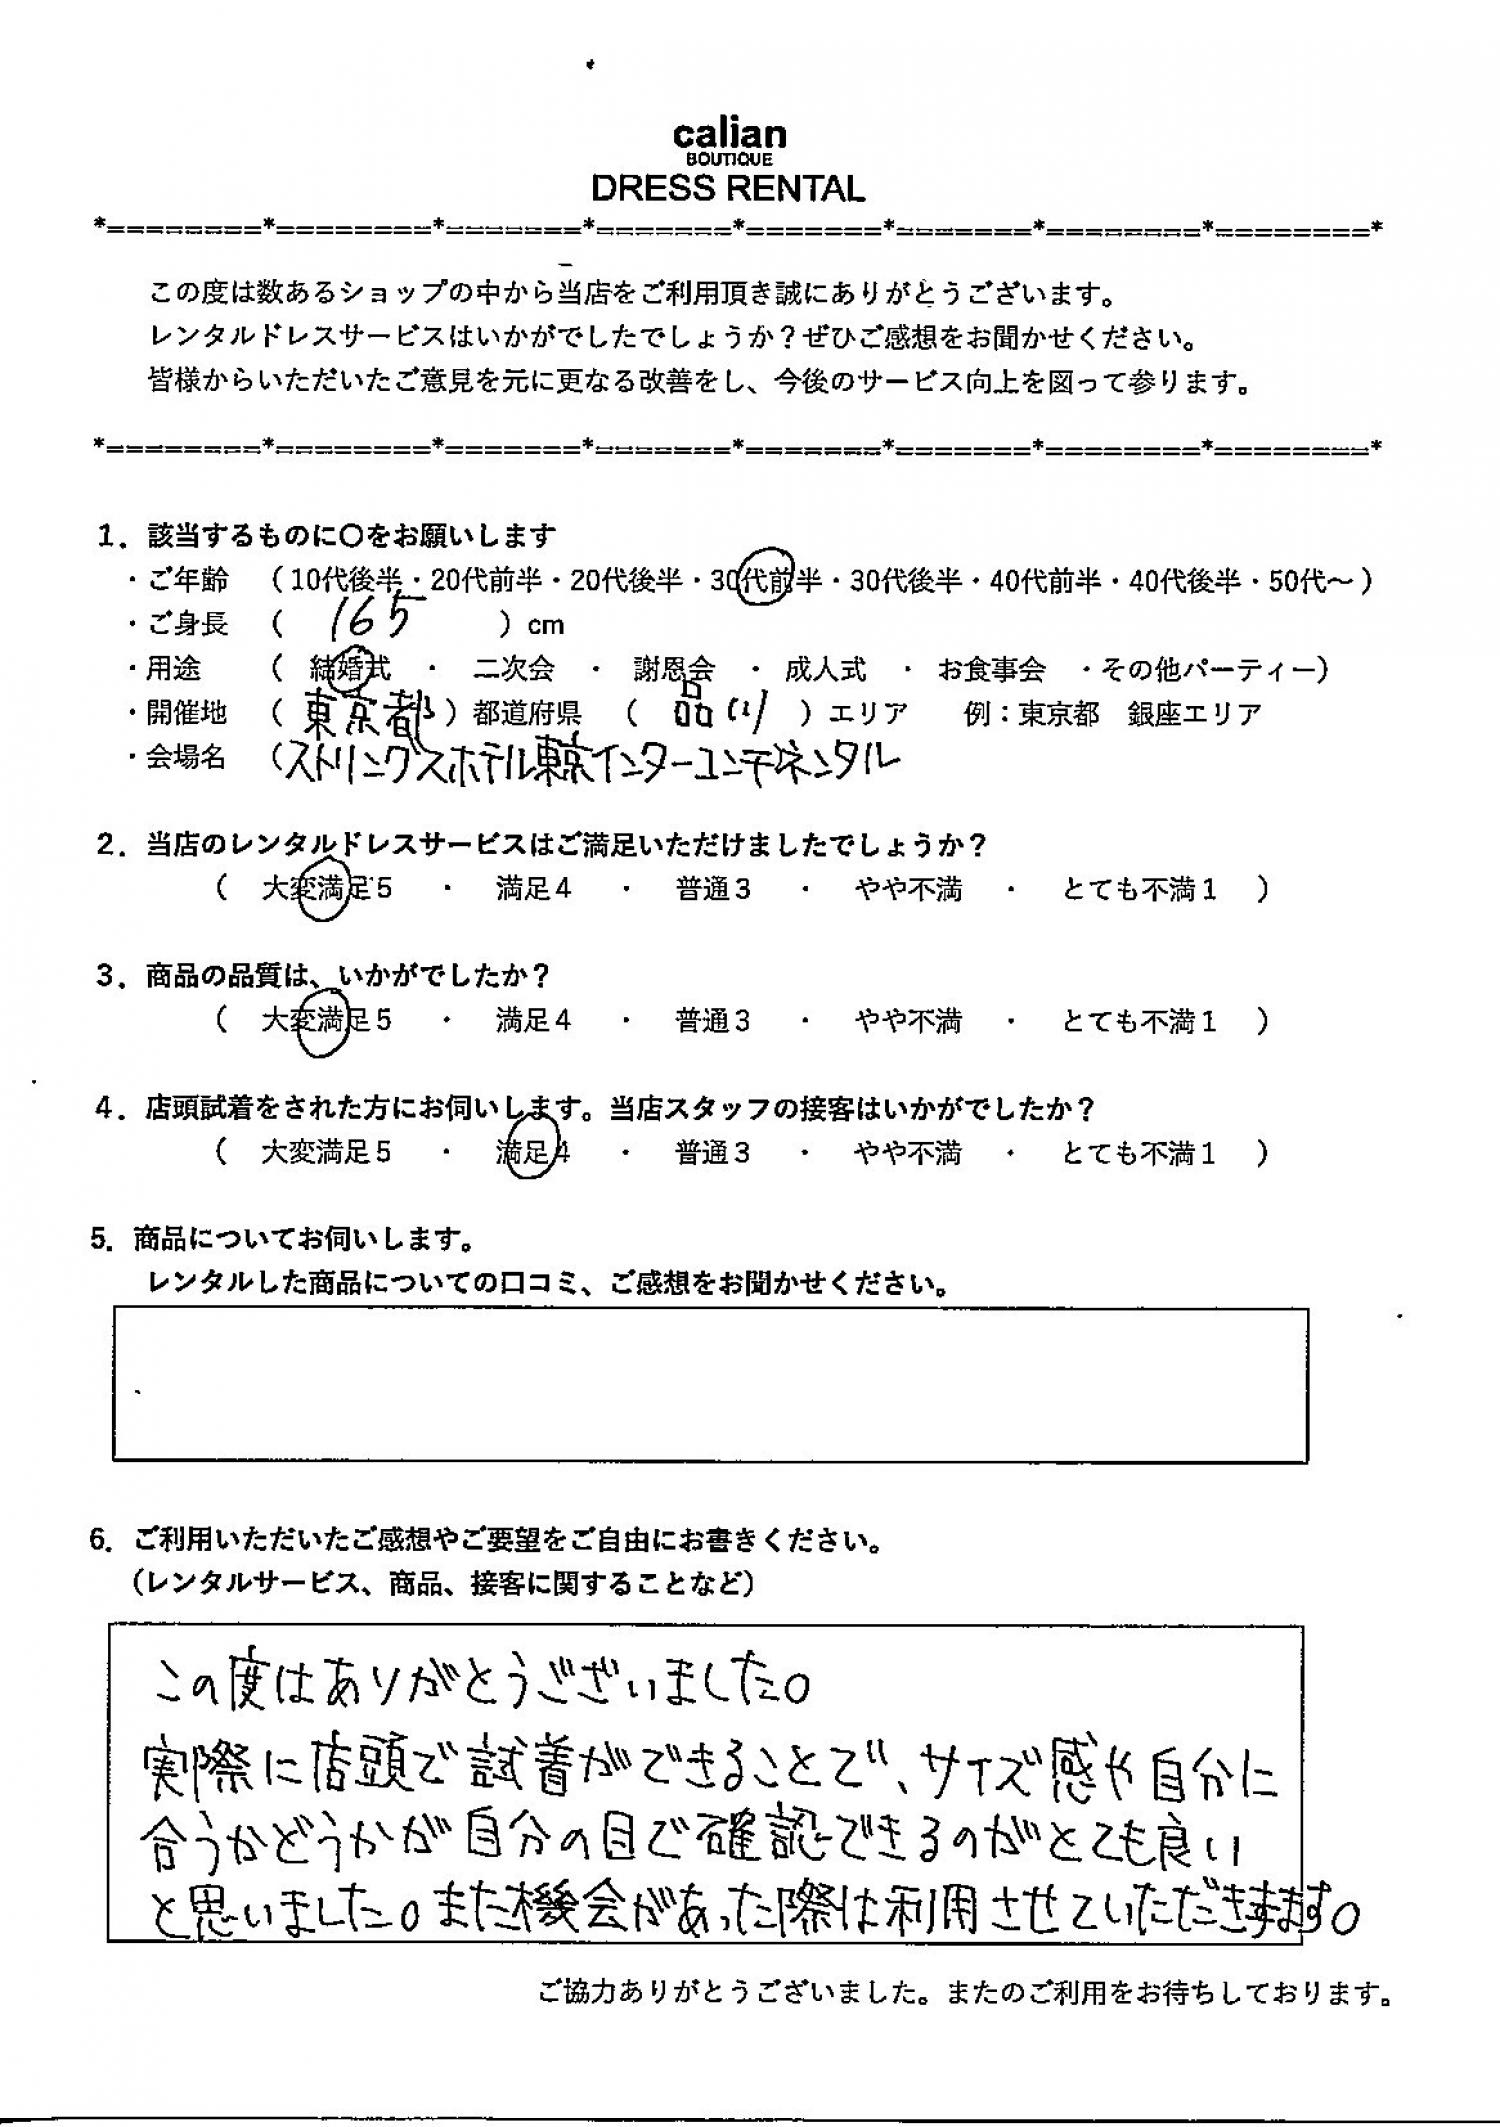 calian
BOUTIQUE
DRESS RENTAL
*========*========*=======*=======*=======*=======*========*========*
この度は数あるショップの中から当店をご利用頂き誠にありがとうございます。
レンタルドレスサービスはいかがでしたでしょうか？ぜひご感想をお聞かせください。
皆様からいただいたご意見を元に更なる改善をし、今後のサービス向上を図って参ります。
*========*========*=======*=======*=======*=======*========*========*
1．該当するものに〇をお願いします
・ご年齢 （10代後半・20代前半・20代後半・30代前半・30代後半・40代前半・40代後半・50代～）
・ご身長 （ 165 ）cm
・用途 （ 結婚式 ・ 二次会 ・ 謝恩会 ・ 成人式 ・ お食事会 ・その他パーティー）
・開催地 （ 東京都 ）都道府県 （ 品川 ）エリア 例：東京都 銀座エリア
・会場名 （ストリングスホテル東京インターコンチネンタル
2．当店のレンタルドレスサービスはご満足いただけましたでしょうか？
（ 大変満足5 ・ 満足4 ・ 普通3 ・ やや不満 ・ とても不満1 ）
3．商品の品質は、いかがでしたか？
（ 大変満足5 ・ 満足4 ・ 普通3 ・ やや不満 ・ とても不満1 ）
4．店頭試着をされた方にお伺いします。当店スタッフの接客はいかがでしたか？
（ 大変満足5 ・ 満足4 ・ 普通3 ・ やや不満 ・ とても不満1 ）
5．商品についてお伺いします。
レンタルした商品についての口コミ、ご感想をお聞かせください。
6．ご利用いただいたご感想やご要望をご自由にお書きください。
（レンタルサービス、商品、接客に関することなど）
この度はありがとうございました。
実際に店頭で試着ができることで、サイズ感や自分に
合うかどうかが自分の目で確認できるのがとても良い
と思いました。また機会があった際は利用させていただきますます。
ご協力ありがとうございました。またのご利用をお待ちしております。